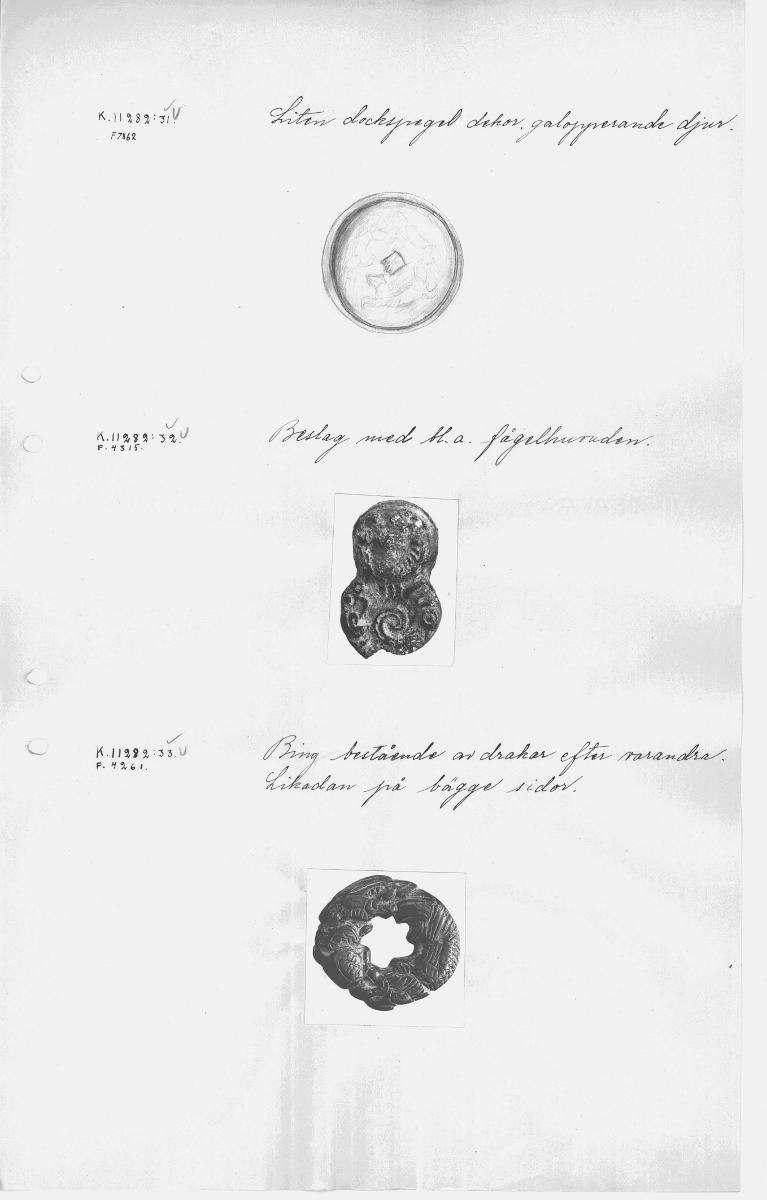 K.11282:31. Liten dockspegel dekor. galopperande djur.
F7862
K.11282:32. Beslag med bl.a. fågelhuvuden.
F.4315.
K.11282:33. Ring bestående av drakar efter varandra.
F.4261.
Likadan på bägge sidor.